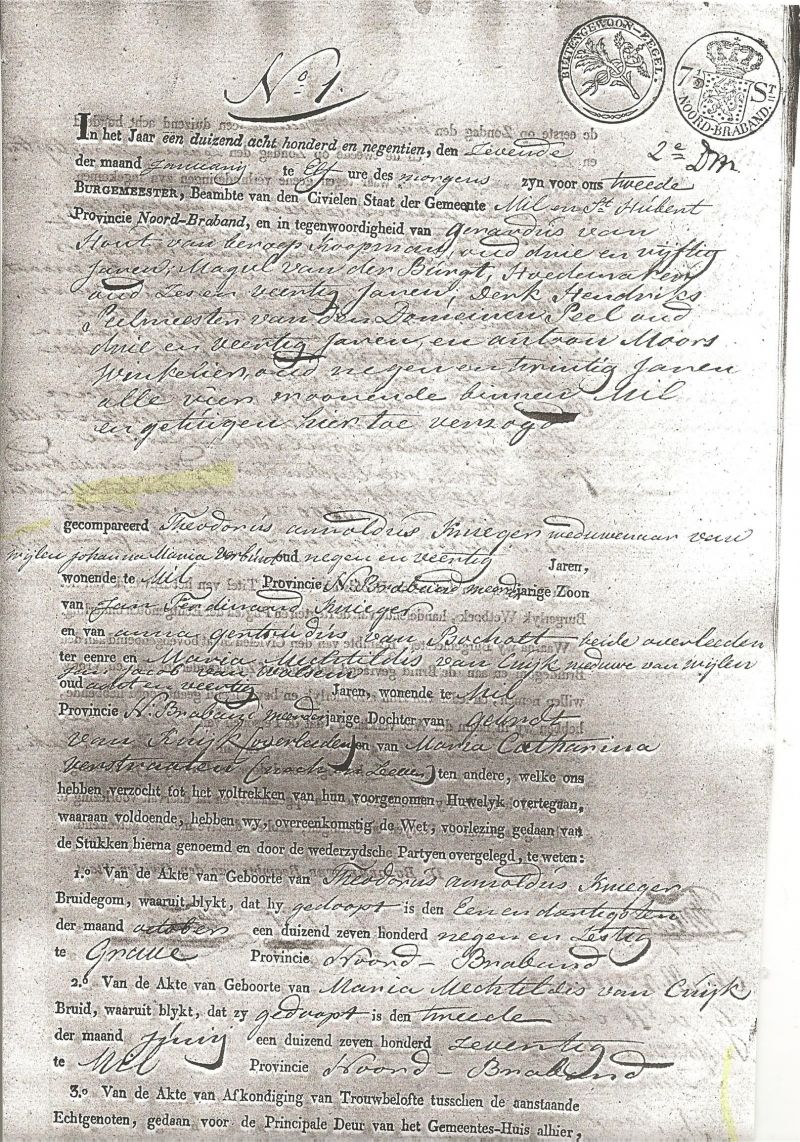 BUITENGEWOON-ZEGEL
7 1/2 ST
NOORD-BRABAND
No. 1.
2e Dm
In het Jaar een duizend acht honderd en negentien, den Zevende
der maand January te Elf ure des morgens zyn voor ons tweede
BURGEMEESTER, Beambte van den Civielen Staat der Gemeente Mil en St. Hubert
Provincie Noord-Braband, en in tegenwoordigheid van Gerardus van
Hout van beroep Koopman, oud drie en vyftig
Jaren, van der Burgt, Hoedemaker
oud Zes en veertig Jaren, Derk Hendriks
Peelmeester van den Domeinen Peel oud
drie en veertig Jaren, en antoon Moors
Winkelier, oud negen en twintig Jaren
alle vier woonende binnen Mil
en getuigen hier toe verzogd
gecompareerd Theodorus arnoldus Krueger weduwenaar van
wylen Johanna Maria oud negen en veertig Jaren,
wonende te Mil Provincie N. Braband meerderjarige Zoon
van Jan Ferdinand Krueger
en van anna gertrudis van Bocholt beide overleeden
ter eenre en Maria Mechtildis van Cuijk weduwe van wijlen
Jan Jacob van
oud acht en veertig Jaren, wonende te Mil
Provincie N. Braband meerderjarige Dochter van gerardt
van Kuijk (overleeden) en van Maria Catharina
verstraaten (noch in Leeven) ten andere, welke ons
hebben verzocht tot het voltrekken van hun voorgenomen Huwelyk overtegaan,
waaraan voldoende, hebben wy, overeenkomstig de Wet, voorlezing gedaan van
de Stukken hierna genoemd en door de wederzydsche Partyen overgelegd, te weten:
1.o Van de Akte van Geboorte van Theodorus arnoldus Krueger
Bruidegom, waaruit blykt, dat hy gedoopt is den Een en dartigsten
der maand october een duizend zeven honderd negen en Zestig
te Grave Provincie Noord-Braband
2.o Van de Akte van Geboorte van Maria Mechtildis van Cuijk
Bruid, waaruit blykt, dat zy gedoopt is den tweede
der maand Junij een duizend zeven honderd zeventig
te Mil Provincie Noord-Braband
3.o Van de Akte van Afkondiging van Trouwbelofte tusschen de aanstaande
Echtgenoten, gedaan voor de Principale Deur van het Gemeentes-Huis alhier,